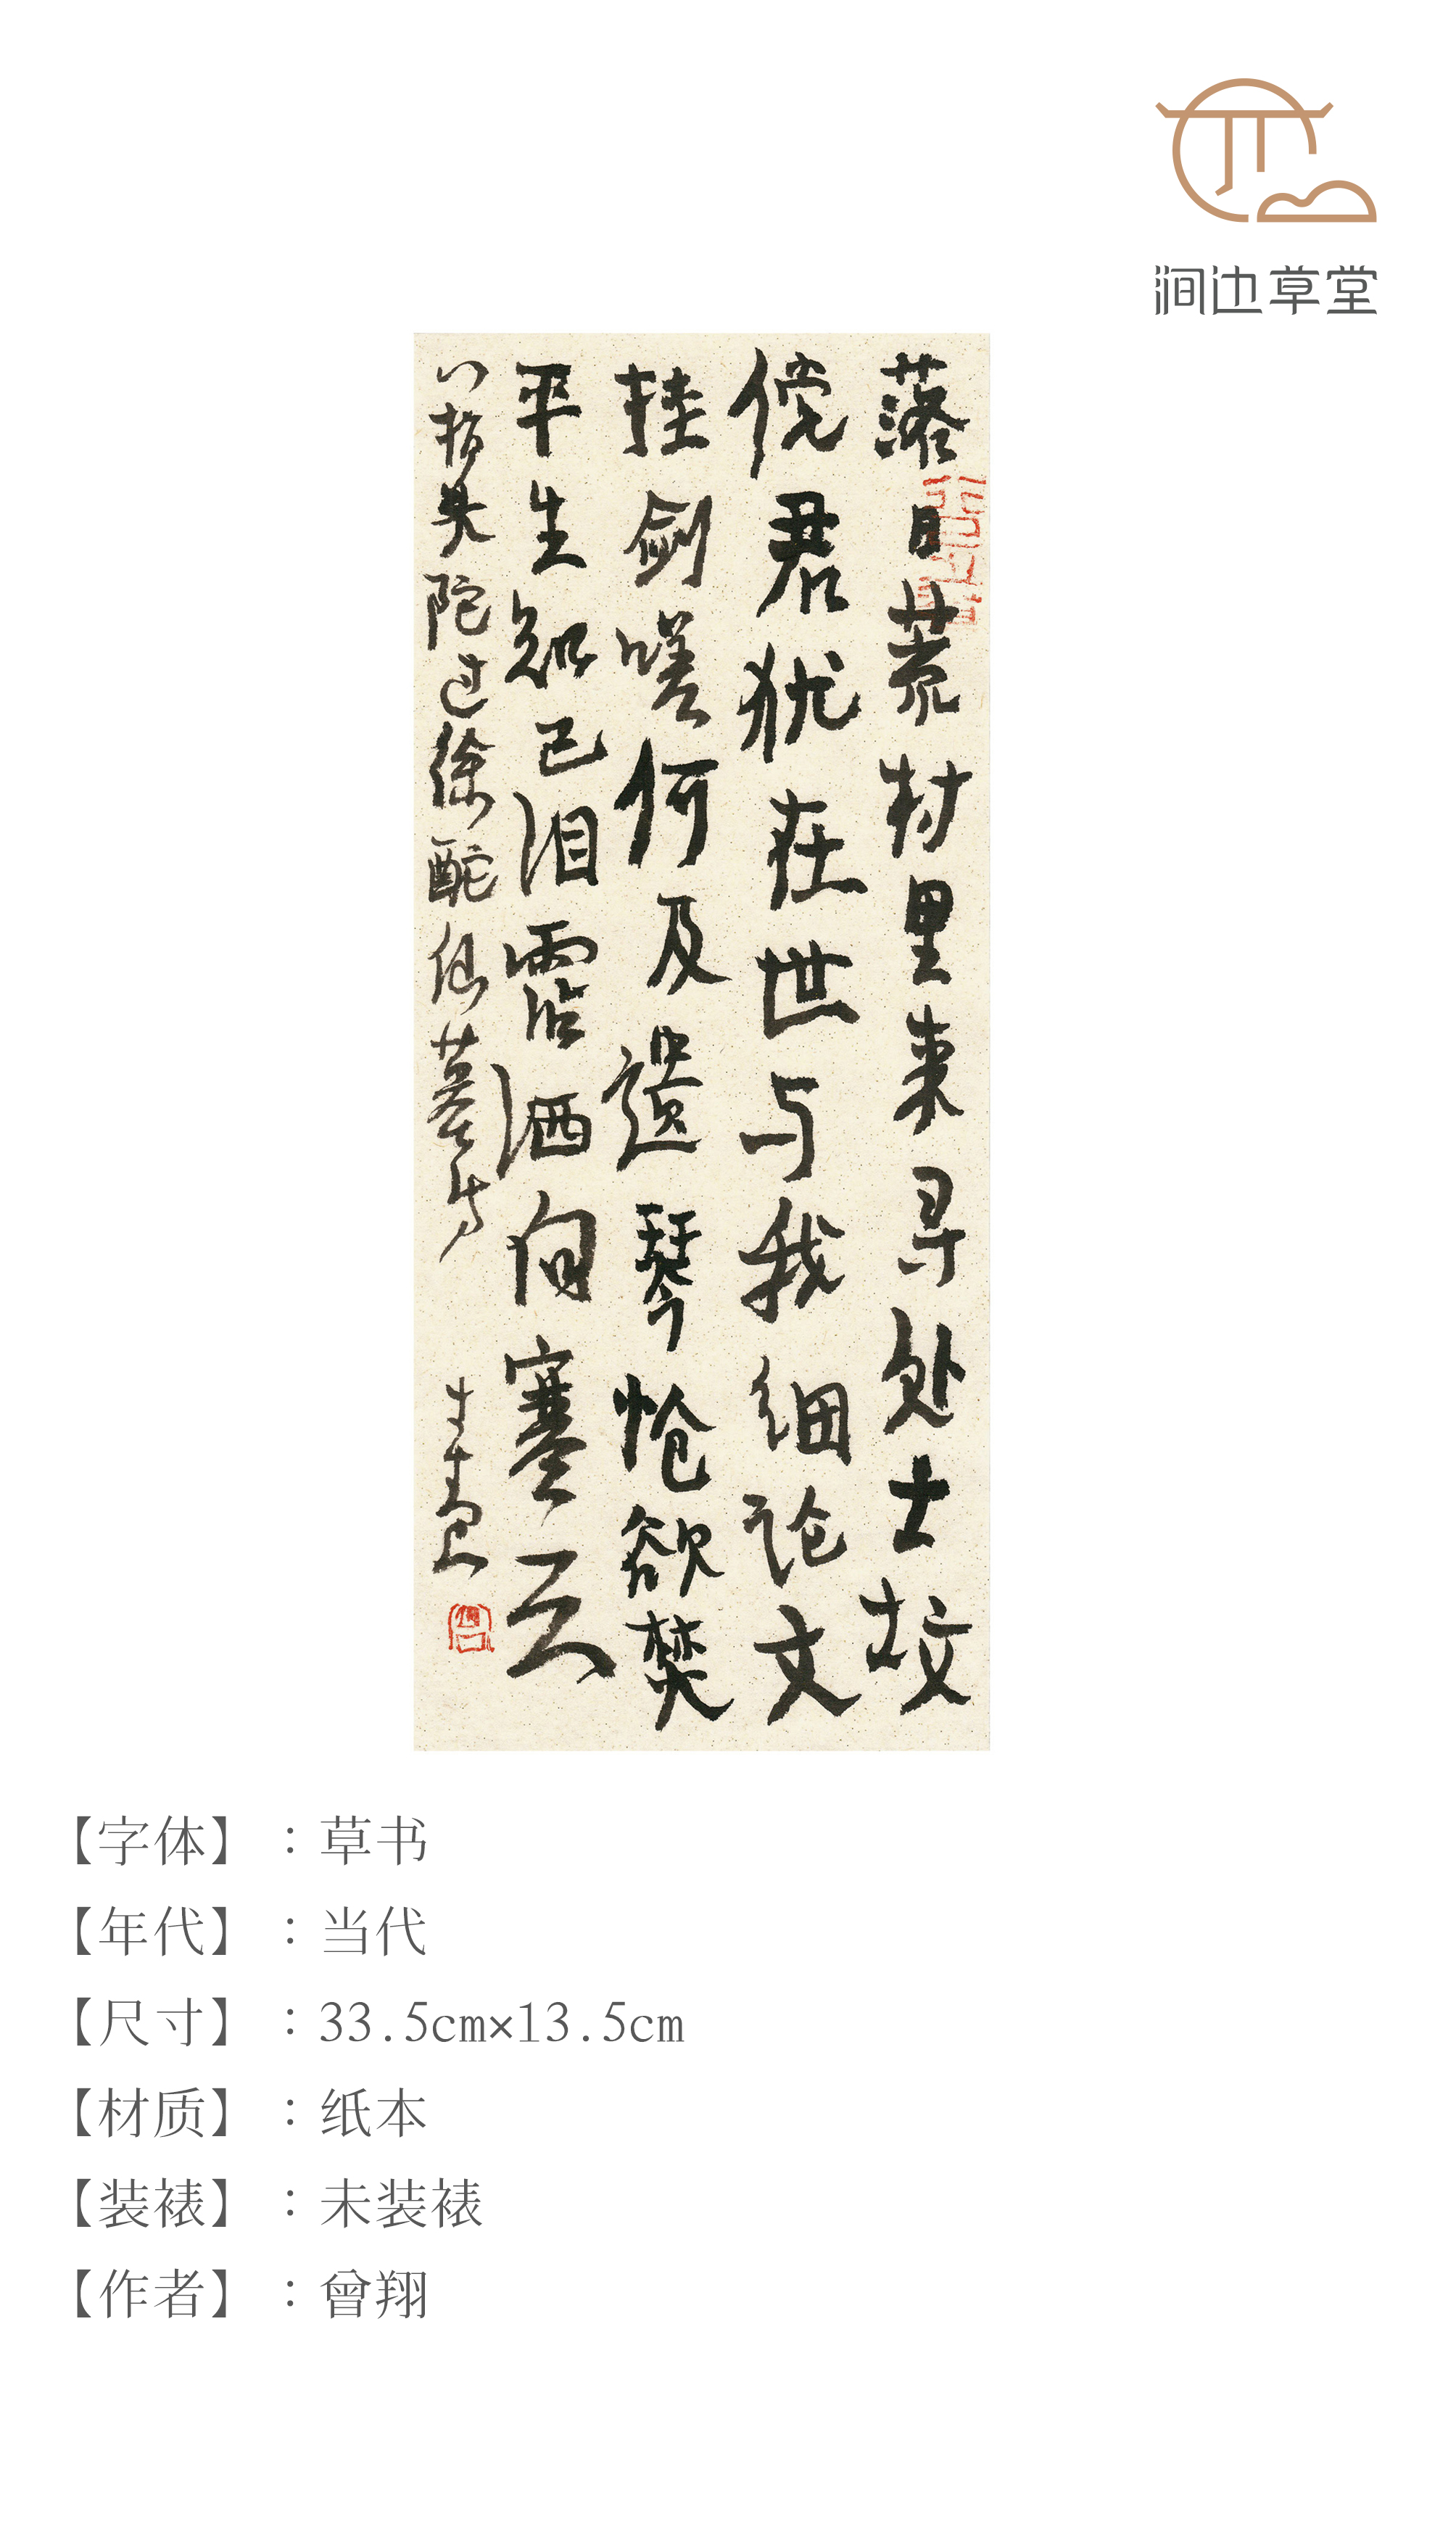 涧边草堂
落日荒村里来寻处士坟
傥君犹在世与我细论文
挂剑嗟何及遗琴怆欲焚
平生知己泪沾洒向寒云
八指头陀过徐酡仙墓
【字体】：草书
【年代】：当代
【尺寸】：33.5cm×13.5cm
【材质】：纸本
【装裱】：未装裱
【作者】：曾翔